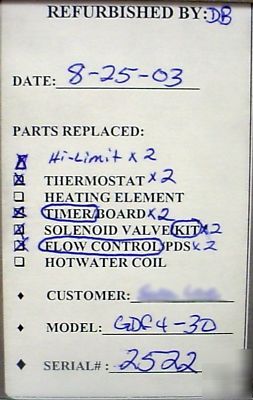 REFURBISHED BY: DB
DATE: 8-25-03
PARTS REPLACED:
Hi-Limit x 2
THERMOSTAT x 2
HEATING ELEMENT
TIMER/BOARD x 2
SOLENOID VALVE KIT x 2
FLOW CONTROL/PDS x 2
HOTWATER COIL
CUSTOMER:
MODEL: GDF4-30
SERIAL#: 2522